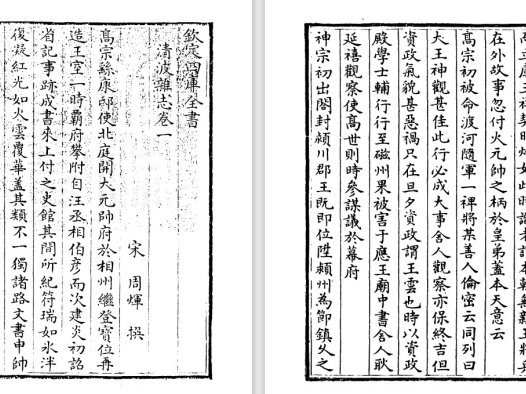 在外故事忽付大元帥之柄於皇弟蓋本天意云
高宗初被命渡河隨軍一裨將某善人倫密云同列曰
大王神觀甚佳此行必成大事舍人觀察亦保終吉但
資政氣貌甚惡禍只在旦夕資政謂王雲也時以資政
殿學士輔行行至磁州果被害于應王廟中書舍人耿
延禧觀察使高世則時參謀議於幕府
神宗初出閤封潁川郡王既即位陞潁州為節鎮久之
欽定四庫全書
清波雜志卷一
宋 周煇 撰
高宗繇康邸使北庭開大元帥府於相州繼登寶位再
造王室一時霸府攀附自汪丞相伯彥而次建炎初詔
省記事跡成書來上付之史館其間所紀符瑞如氷泮
復凝紅光如火雲覆華蓋其類不一獨諸路文書申帥